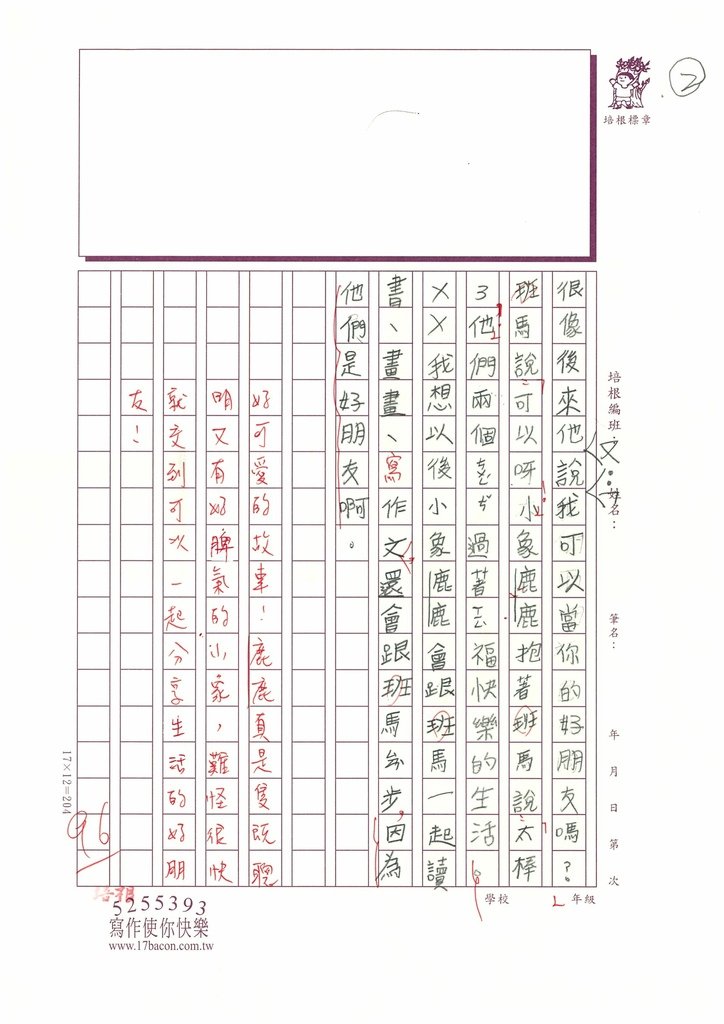 2
培根標章
培根編班：
姓名：
筆名：
年 月 日 第 次
2 年級
學校
很像後來他說我可以當你的好朋友嗎?
班馬說：可以呀小象鹿鹿抱著班馬說太棒
ㄋ他們兩個ㄓㄥˋ過著ㄒㄧㄥˋ福快樂的生活。
XX我想以後小象鹿鹿會跟班馬一起讀
書、畫畫、寫作文還會跟班馬ㄙㄢˋ步,因為
他們是好朋友啊。
好可愛的故事！鹿鹿真是隻既聰
明又有好脾氣的小象，難怪很快
就交到可以一起分享生活的好朋
友！
96
17×12=204
培根
5255393
寫作使你快樂
www.17bacon.com.tw